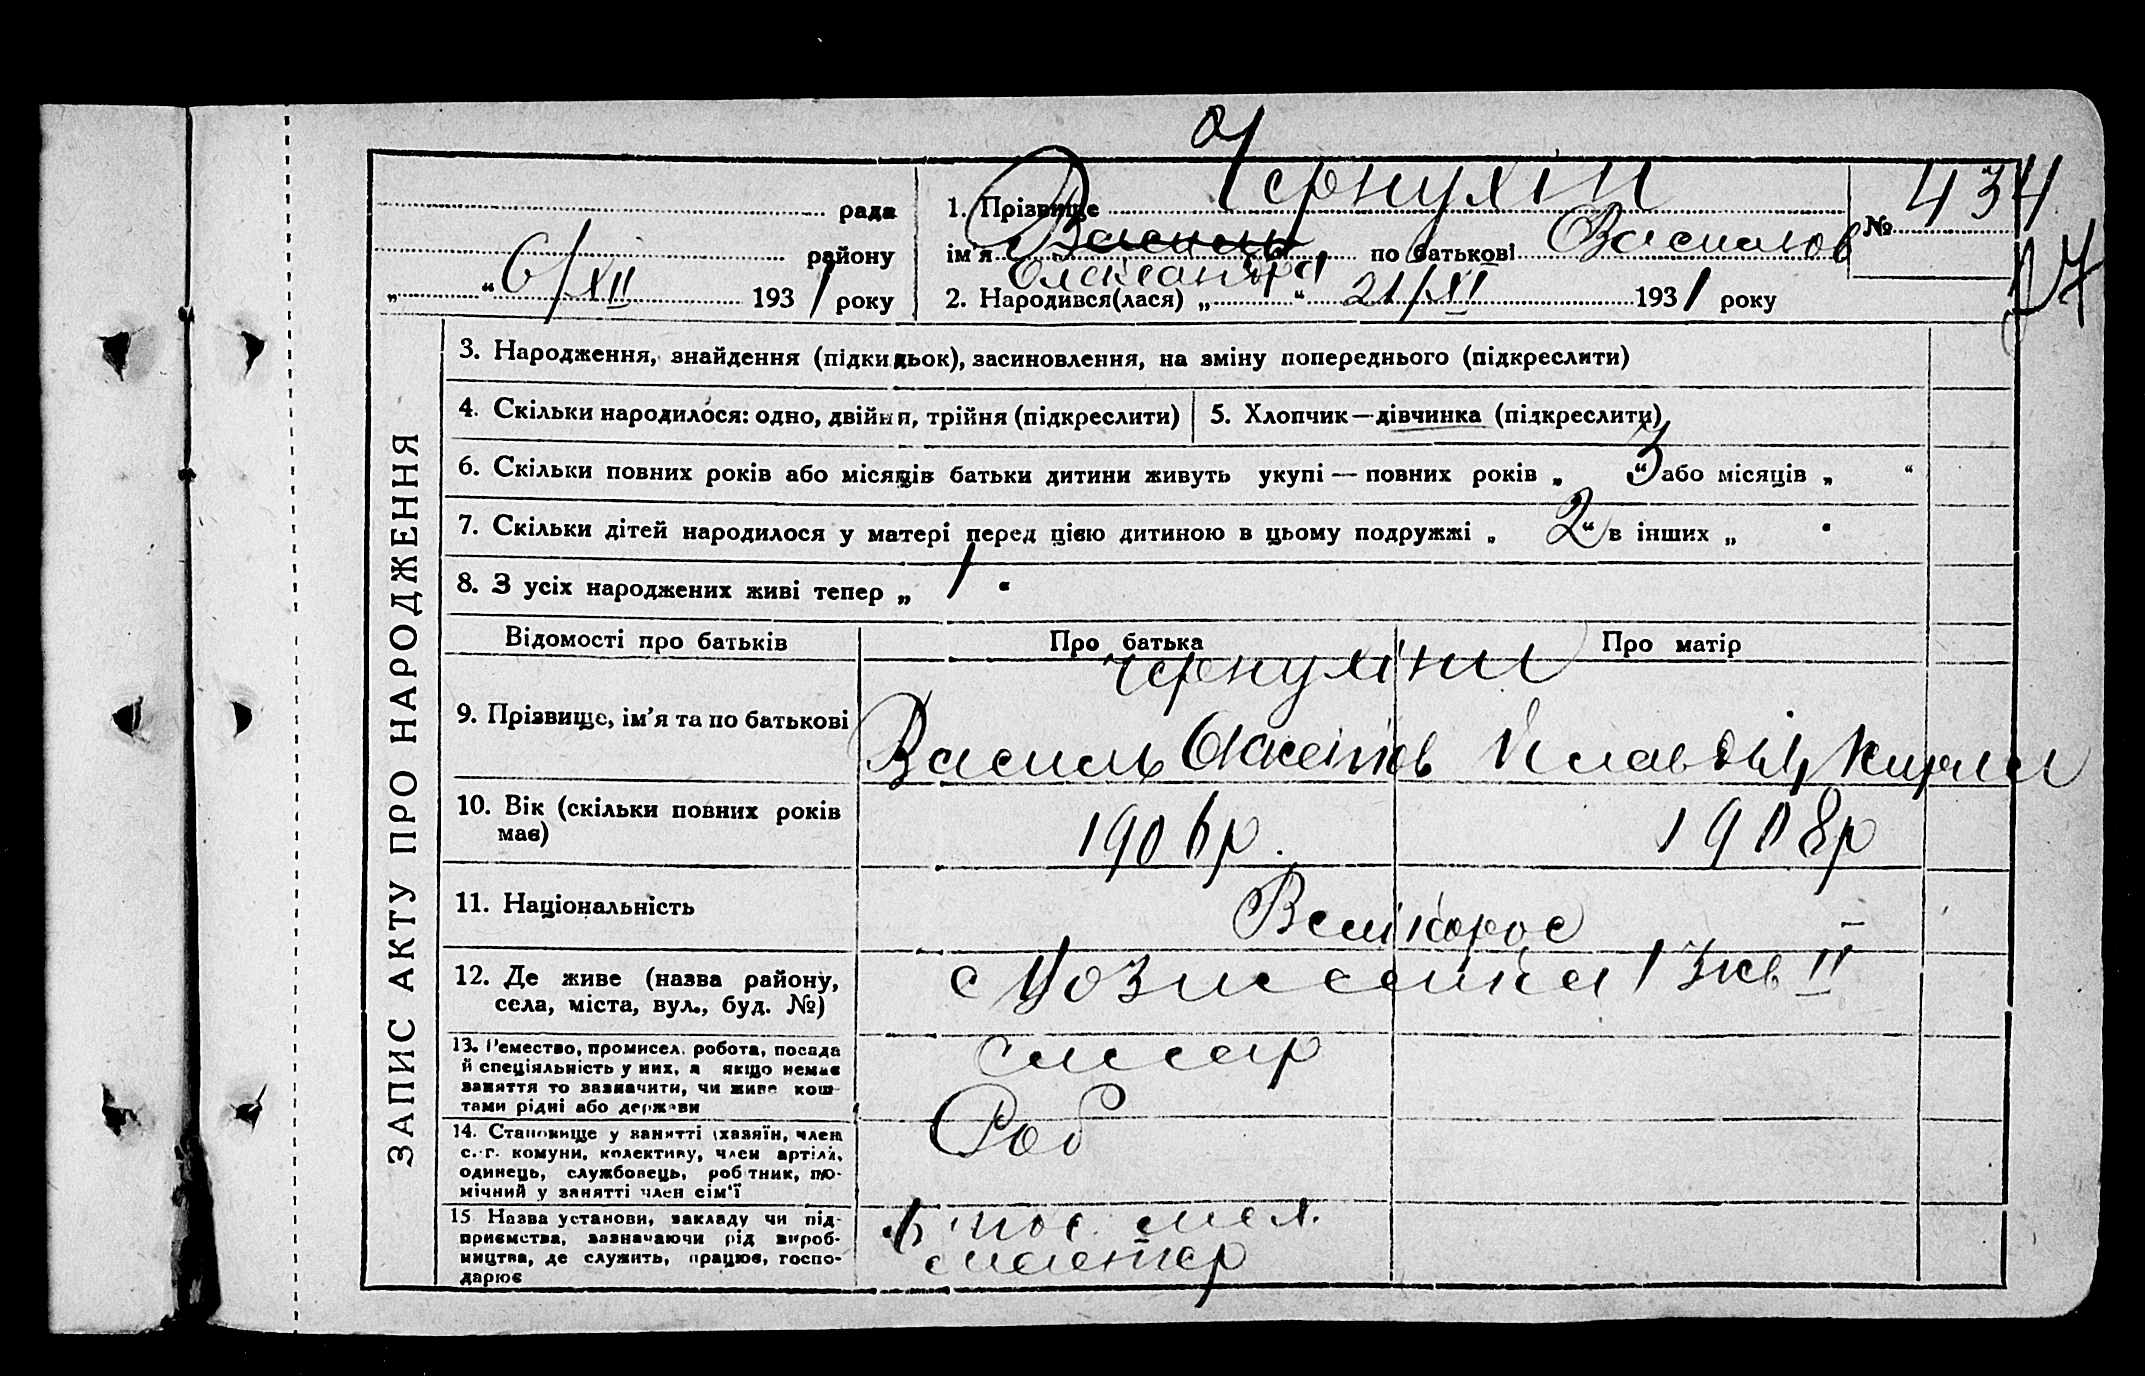 Чернухін
рада
1. Прізвище
№ 434
району
ім'я Василь по батькові Василов
Олександра
„ “ 6/XII 1931 року
2. Народився(лася) „ “ 21/XI 1931 року
ЗАПИС АКТУ ПРО НАРОДЖЕННЯ
3. Народження, знайдення (підкидьок), засиновлення, на зміну попереднього (підкреслити)
4. Скільки народилося: одно, двійня, трійня (підкреслити)
5. Хлопчик—дівчинка (підкреслити)
6. Скільки повних років або місяців батьки дитини живуть укупі — повних років „ 3 “ або місяців „ “
7. Скільки дітей народилося у матері перед цією дитиною в цьому подружжі „ 2 “ в інших „ “
8. З усіх народжених живі тепер „ 1 “
Відомості про батьків
Про батька
Про матір
Чернухіни
9. Прізвище, ім'я та по батькові
Василь
Клавдія Кирил
10. Вік (скільки повних років
має)
1906р.
1908р
11. Національність
Великорос
12. Де живе (назва району,
села, міста, вул., буд. №)
13. Ремество, промисел, робота, посада
й спеціяльність у них, а якщо немає
заняття то зазначити, чи живе кош-
тами рідні або держави
слюсар
14. Становище у занятті (хазяїн, член
с.-г. комуни, колективу, член артілі,
одинець, службовець, робітник, помо-
мічний у занятті член сім'ї
Роб
15 Назва установи, закладу чи під-
приємства, зазначаючи рід вироб-
ництва, де служить, працює, госпо-
дарює